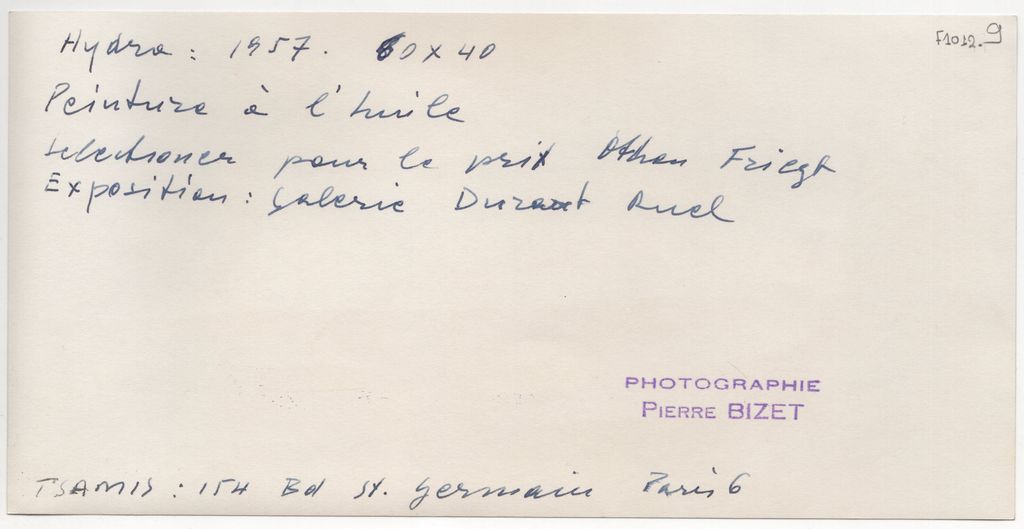 F1012.9
Hydra : 1957. 60 x 40
Peinture à l'huile
selectioner pour le prix Othon Friezt
Exposition : Galerie Durant Ruel
PHOTOGRAPHIE
PIERRE BIZET
TSAMIS : 154 Bd St. Germain Paris 6